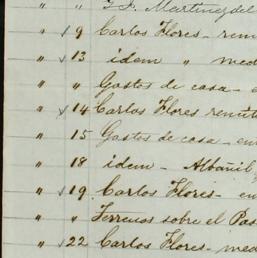 " " G. P. Martinez del
" √ 9 Carlos Flores - remi
" √ 13 idem " med
" " Gastos de casa - e
" √ 14 Carlos Flores remit
" 15 Gastos de casa - en
" 18 idem - Albañil
" √ 19 Carlos Flores - en
" " Terrenos sobre el Pas
" √ 22 Carlos Flores - med